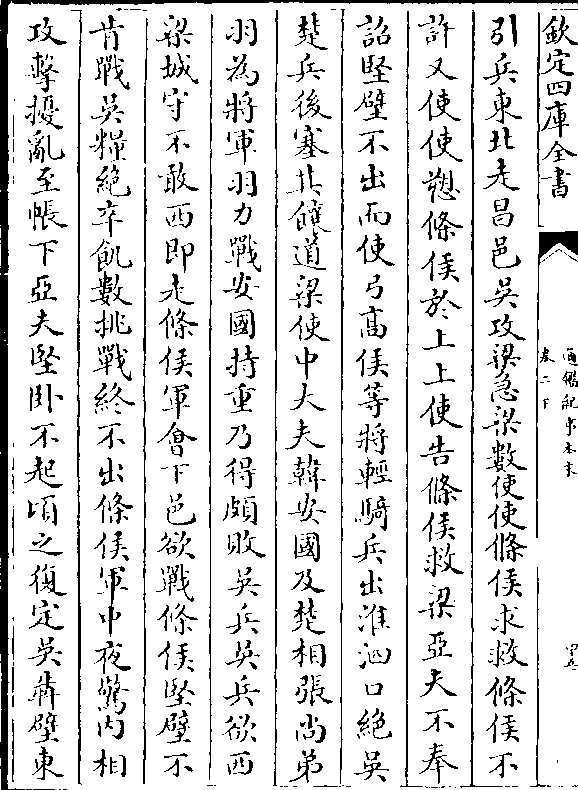 欽定四庫全書
通鑑紀事本末
卷二下
引兵東北走昌邑吳攻梁急梁數使使條侯求救條侯不
許又使使愬條侯於上上使告條侯救梁亞夫不奉
詔堅壁不出而使弓高侯等將輕騎兵出淮泗口絕吳
楚兵後塞其饟道梁使中大夫韓安國及楚相張尚弟
羽為將軍羽力戰安國持重乃得頗敗吳兵吳兵欲西
梁城守不敢西即走條侯軍會下邑欲戰條侯堅壁不
肯戰吳糧絕卒飢數挑戰終不出條侯軍中夜驚內相
攻擊擾亂至帳下亞夫堅卧不起頃之復定吳犇壁東